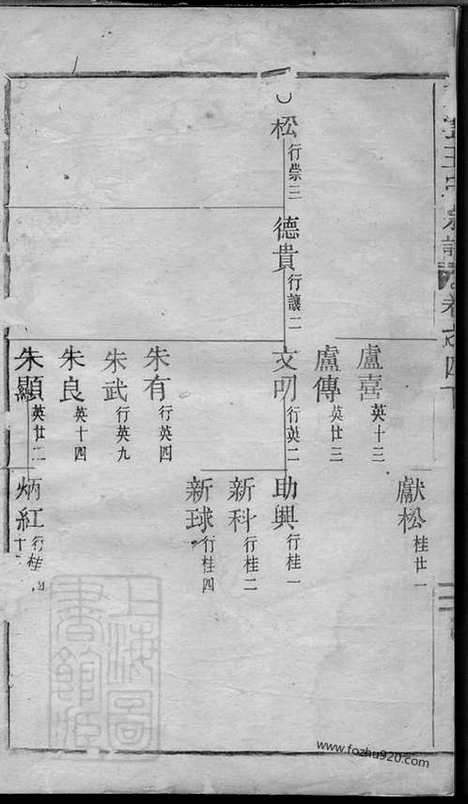 王氏宗譜 卷之四
松 行崇三
德貴 行讓二
盧喜 英十三
盧傳 英廿三
文明 行英二
朱有 行英四
朱武 行英九
朱良 英十四
朱顯 英廿二
獻松 桂廿一
助興 行桂一
新科 行桂二
新球 行桂四
炳紅 行桂
上海圖
書館藏
www.fozhu920.com